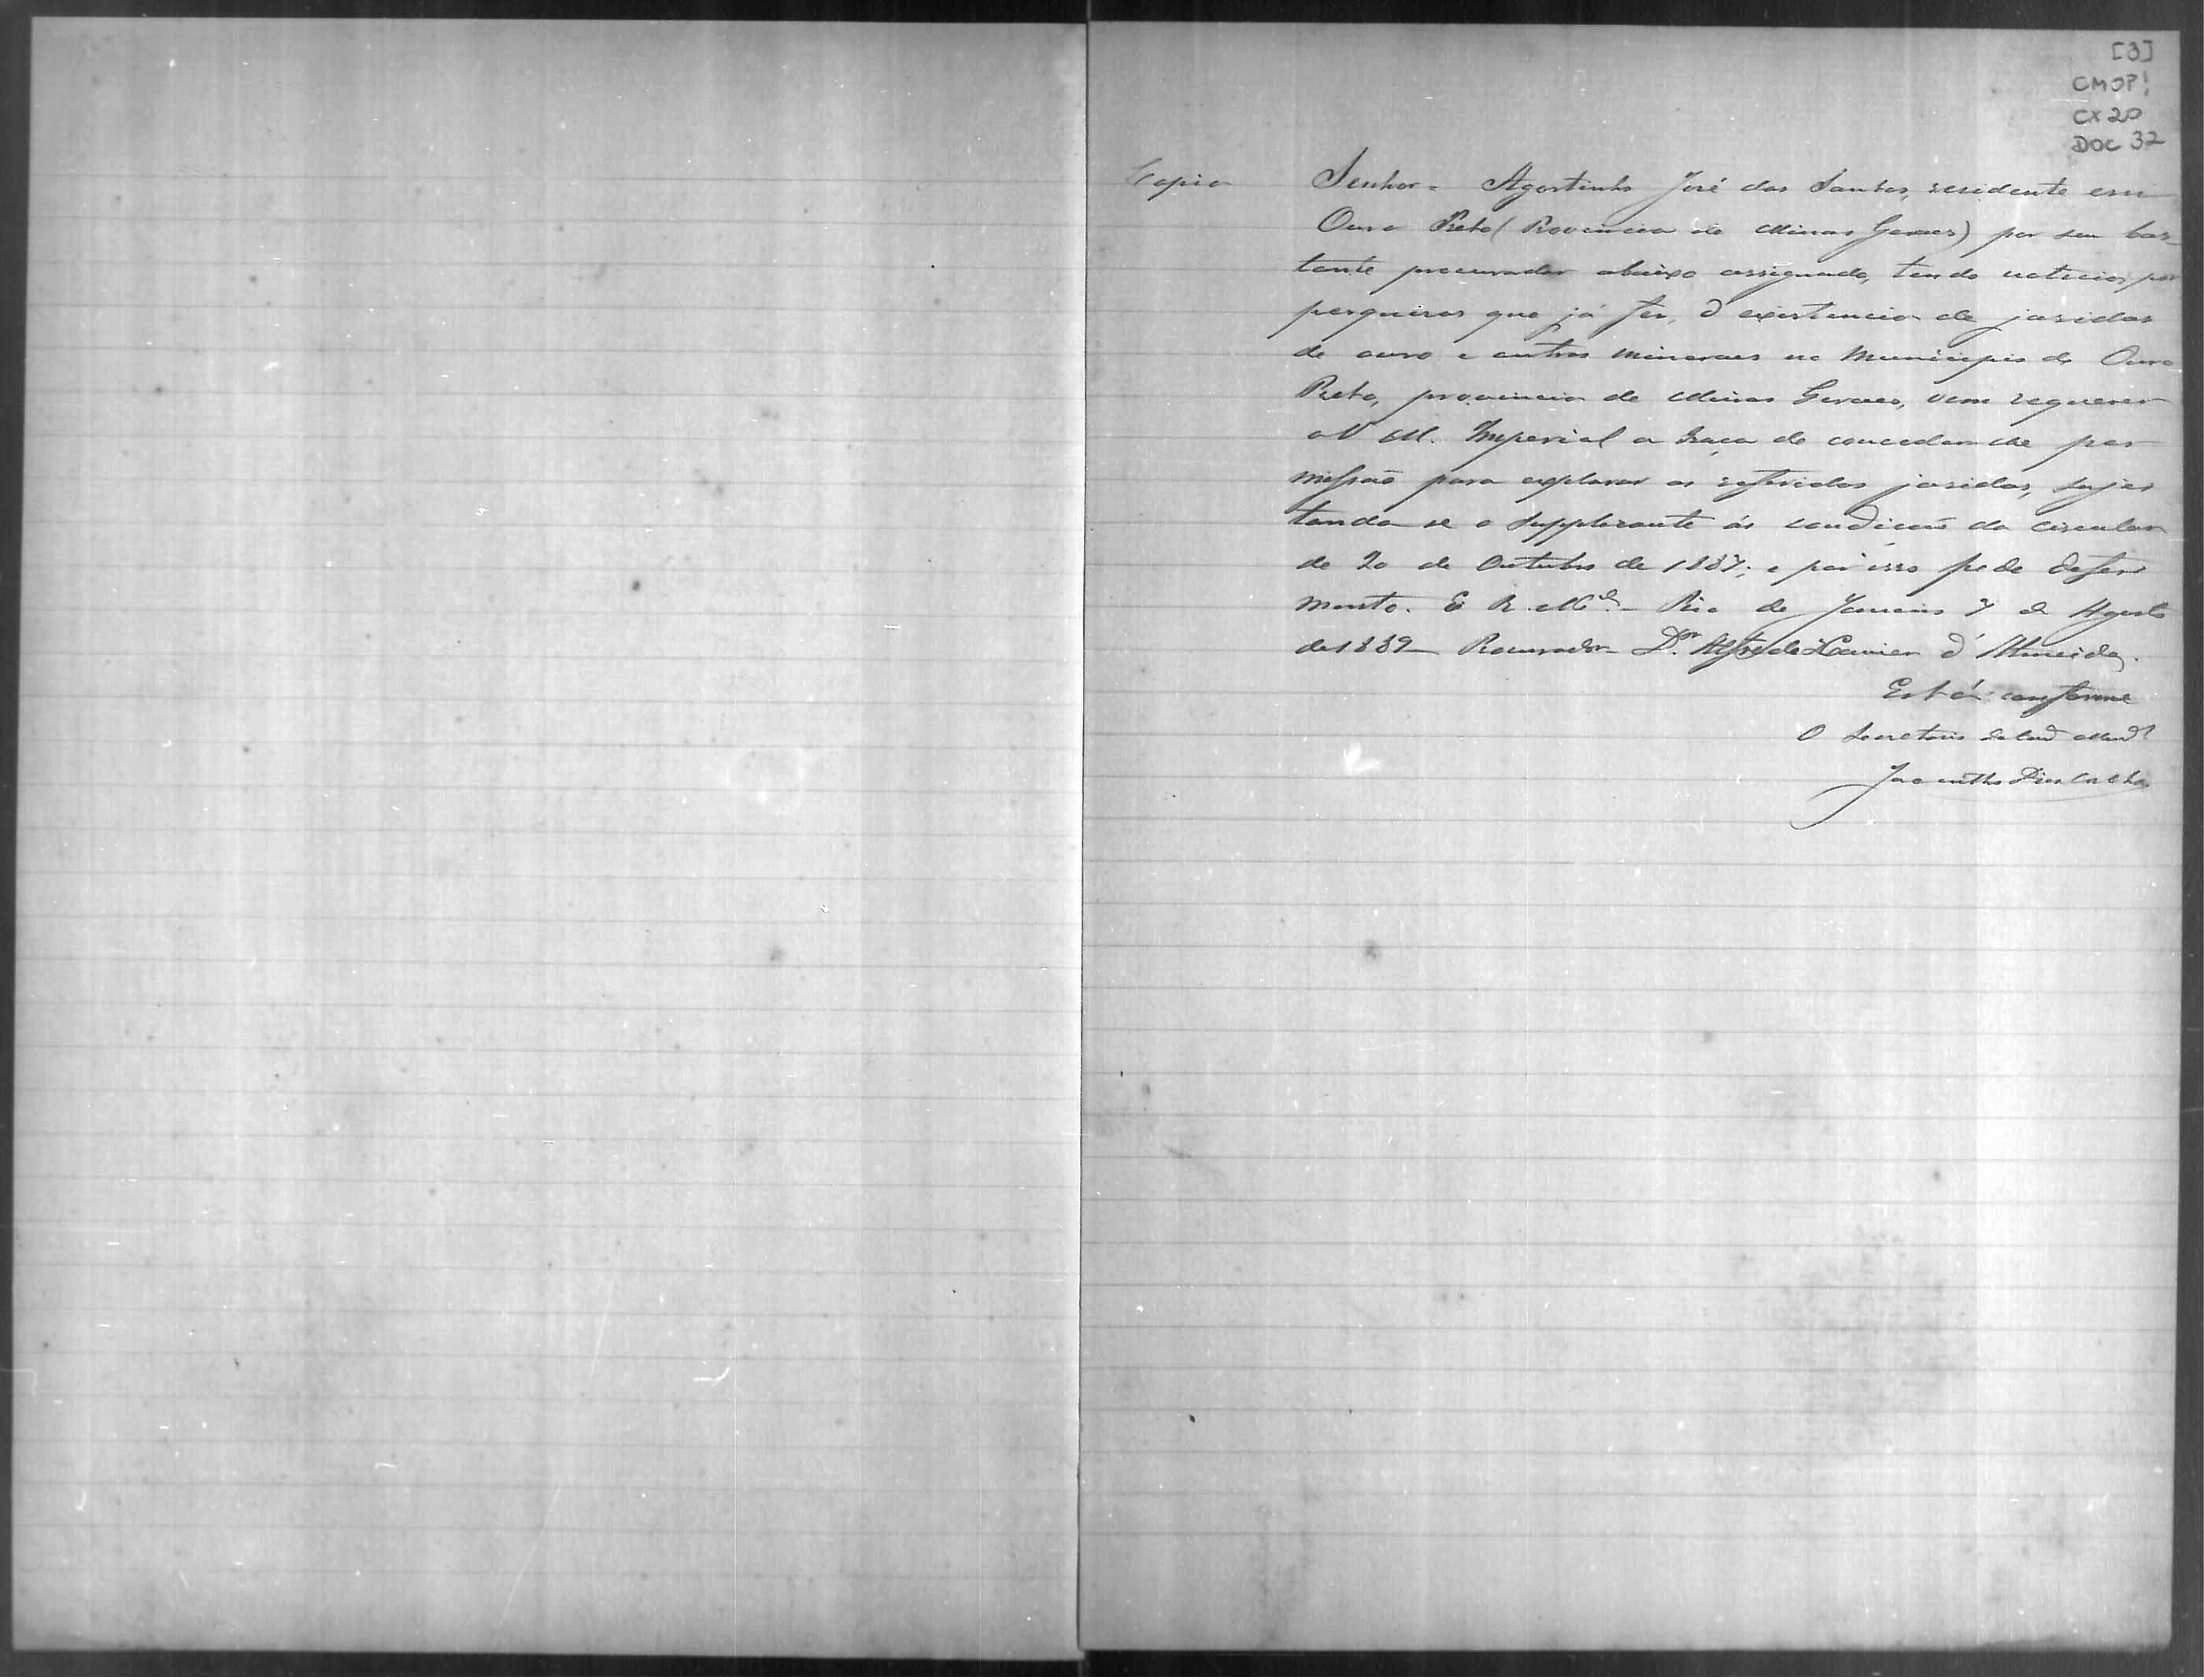 [3]
CMOP!
CX 20
DOC 32
Copia
Senhor - Agostinho José dos Santos, residente em
Ouro Preto (Provincia de Minas Geraes) por seu bas-
tante procurador abaixo assignado, tendo noticia, por
pesquisas que já fez, d existencia de jasidas
de ouro e outros mineraes no Municipio de Ouro
Preto, provincia de Minas Geraes, vem requerer
a V. M. Imperial a graça de conceder-lhe per
missão para explorar as referidas jasidas, sujei
tando se o Supplicante ás condicões da circular
de 20 de Outubro de 1887; e por isso pede deferi
mento. E. R. M.ce - Rio de Janeiro 7 de Agosto
de 1889 - Procurador - Dr. Alfredo Xavier d'Almeida.
Está conforme
O Secretario da
Jacintho Dias Coelho